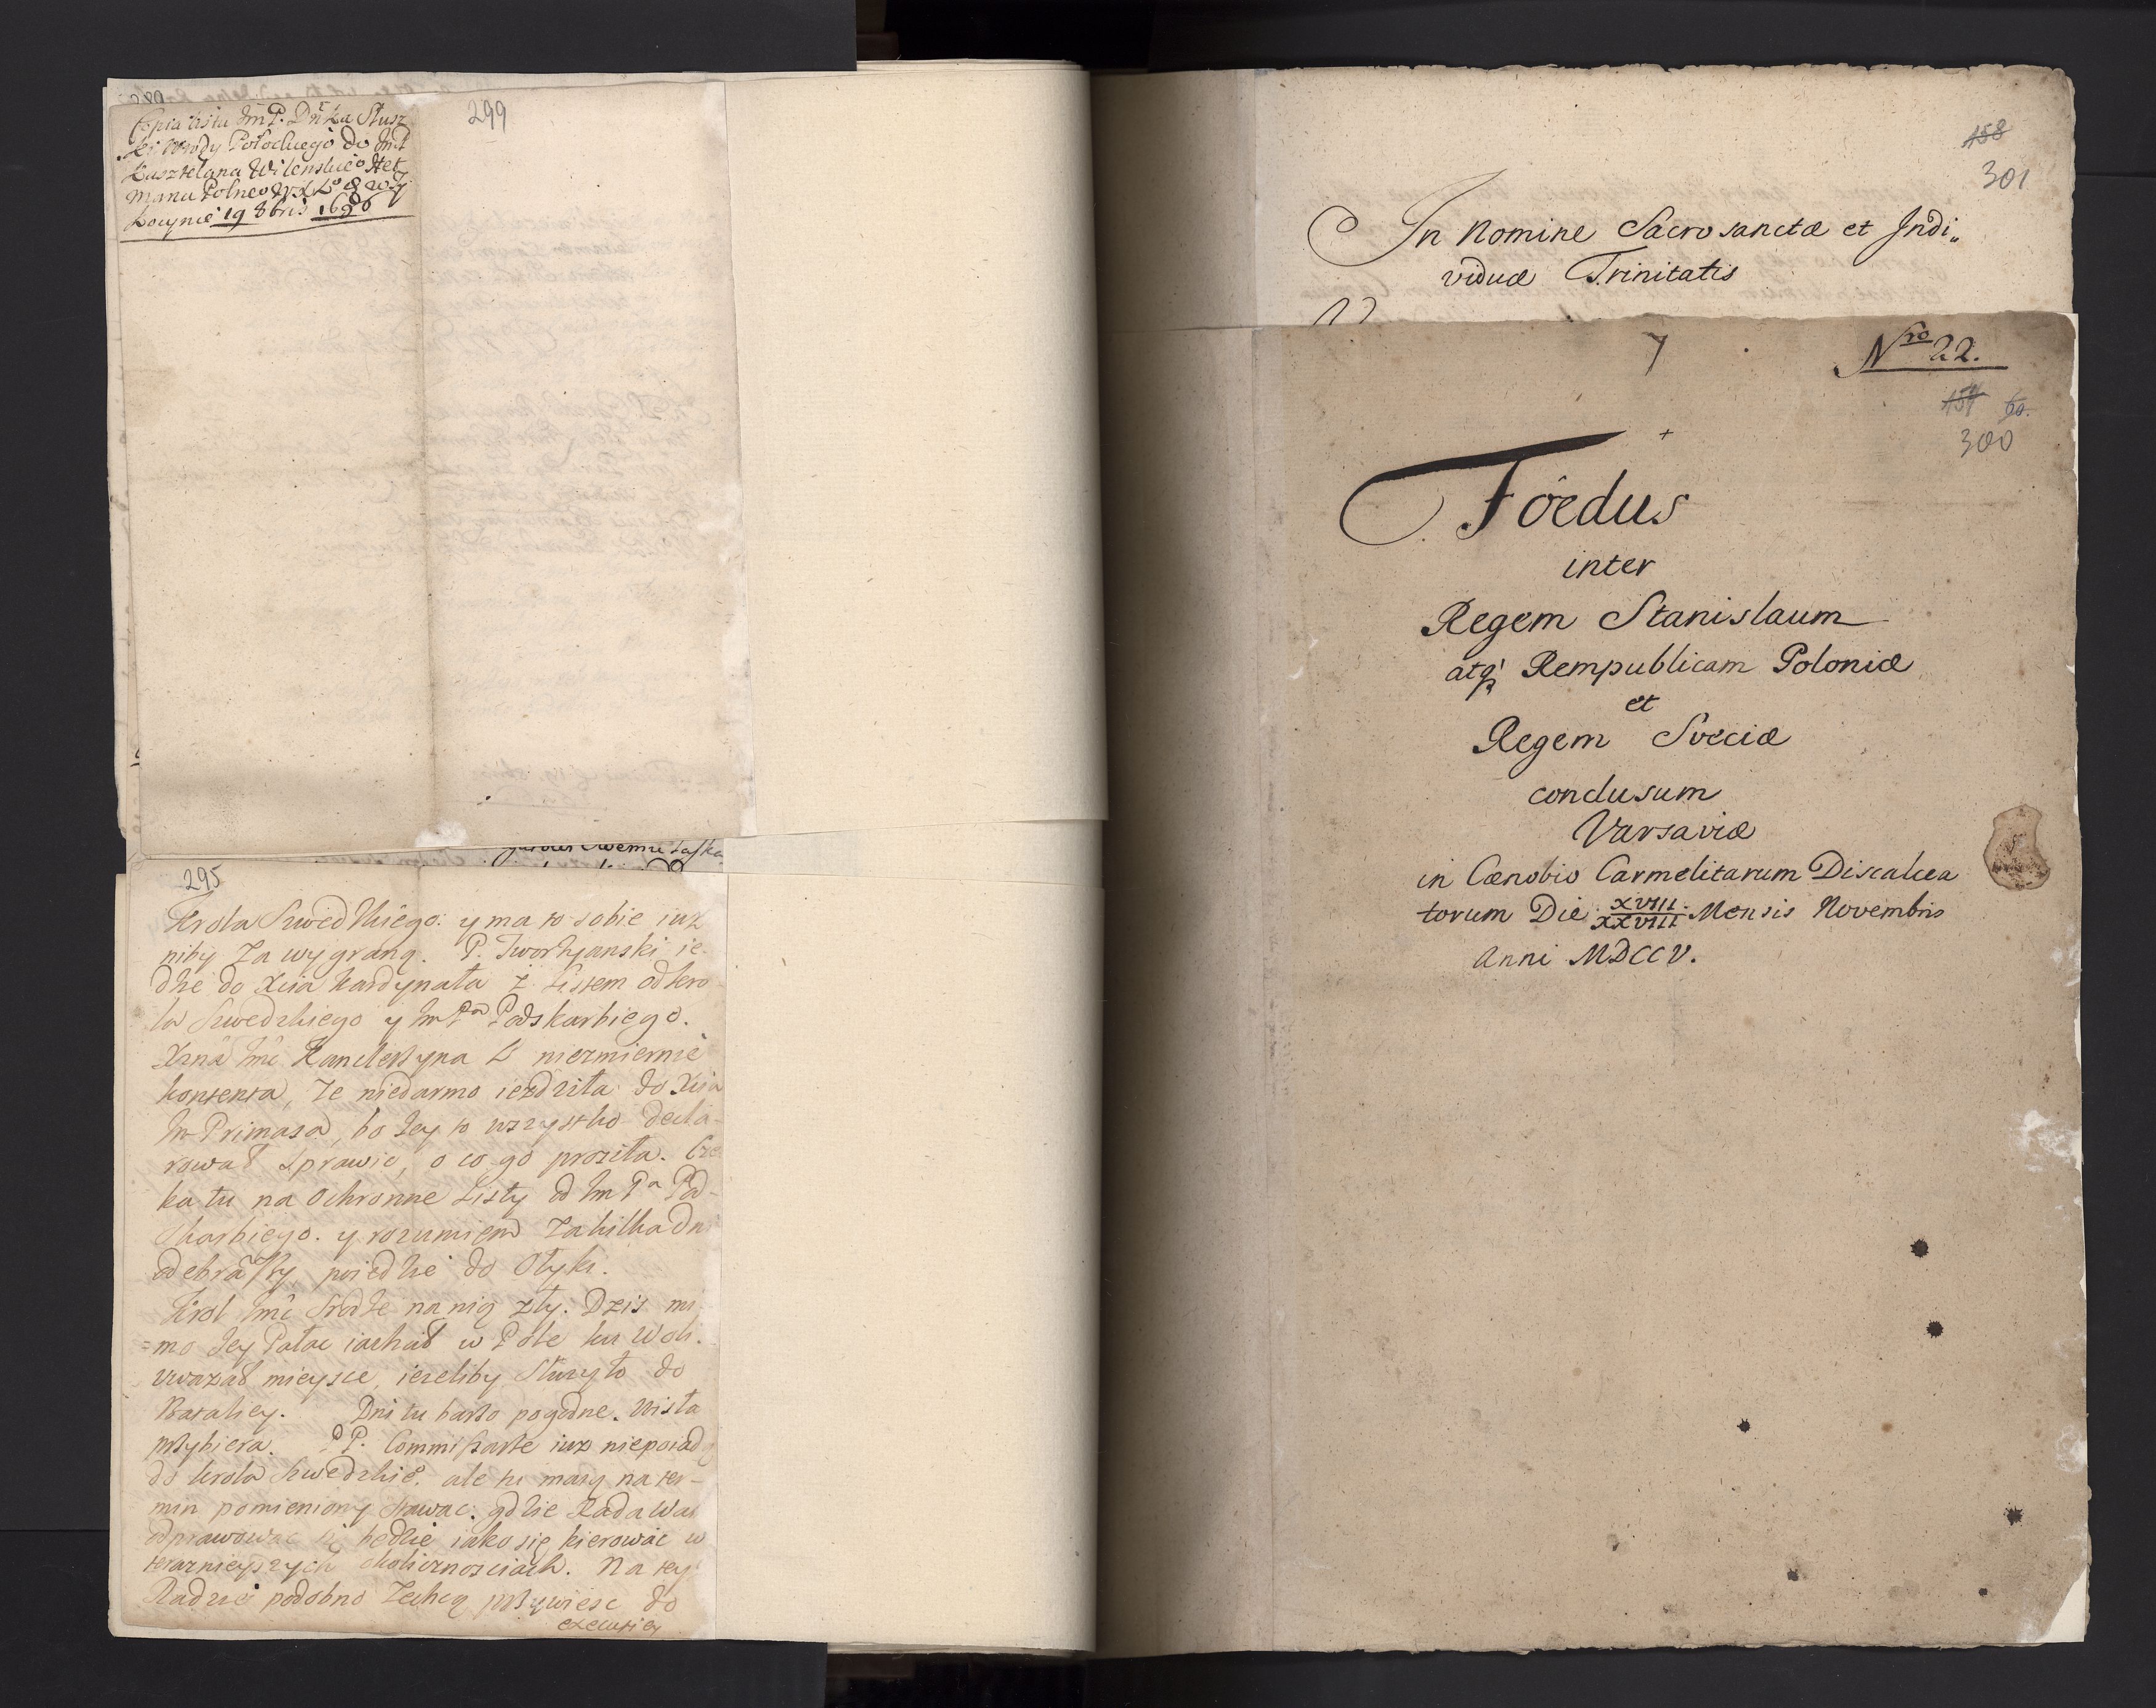 299
Copia listu Jm P.
Wdy Połockiego do Jmć
Kasztelana Wilenskiego Het
mana Polneo
Kocynie 19 8bris 1686
295
Krola Szwedzkiego: y ma to sobie iuz
niby za wygraną. P. Tworzyanski ie-
dzie do Xcia Kardynała z Listem od kro
la Szwedzkiego y Jm Pa Podskarbiego.
Xzna Jmc Kanclerzyna L niezmiernie
kontenta, ze niedarmo iezdziła do Xcia
Jm Primasa, bo Jey to wszystko decla-
rował sprawic, o co go prosiła. Cze
ka tu na Ochronne Listy od Jm Pa Pod-
skarbiego. y rozumiem za kilka dn
odebrawszy, poiedzie do Ołyki.
Krol Jmc srodze na nią zły. Dzis mi
=mo Jey Pałac iachał w Pole ku Woli.
Uwazał mieysce, iezeliby słuzyło do
Bataliey. Dni tu barzo pogodne. Wisła
przybiera. PP. Commissarze iuz niepoiadą
do krola Szwedzkieo. ale tu maią na ter-
min pomieniony stawac. gdzie Rada Wal
odprawowac się będzie iako się kierowac w
teraznieyszych okolicznosciach. Na tey
Radzie podobno zechcą przywiesc do
executiey
158
301
In Nomine Sacrosanctæ et Indi„
viduæ Trinitatis
7
Nro 22.
300
Fœdus
inter
Regem Stanislaum
atq; Rempublicam Poloniæ
et
Regem Sveciæ
conclusum
Varsaviæ
in Cœnobio Carmelitarum Discalcea
torum Die XVIII/XXVIII Mensis Novembris
Anni MDCCV.